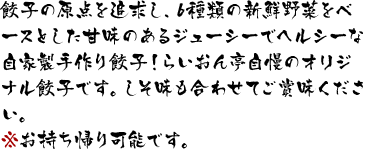 餃子の原点を追求し、6種類の新鮮野菜をベ
ースとした甘味のあるジューシーでヘルシーな
自家製手作り餃子！らいおん亭自慢のオリジ
ナル餃子です。しそ味も合わせてご賞味くださ
い。
※お持ち帰り可能です。